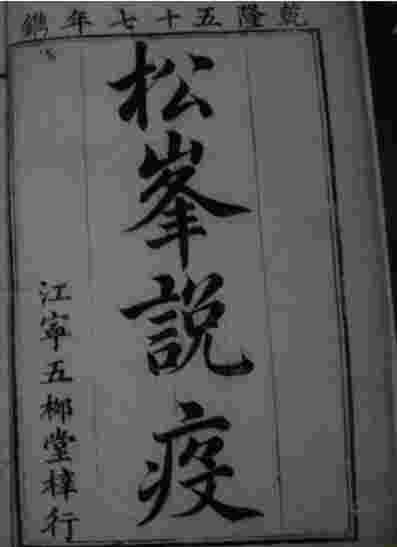 乾隆五十七年鐫
松峯説疫
江寧五柳堂梓行